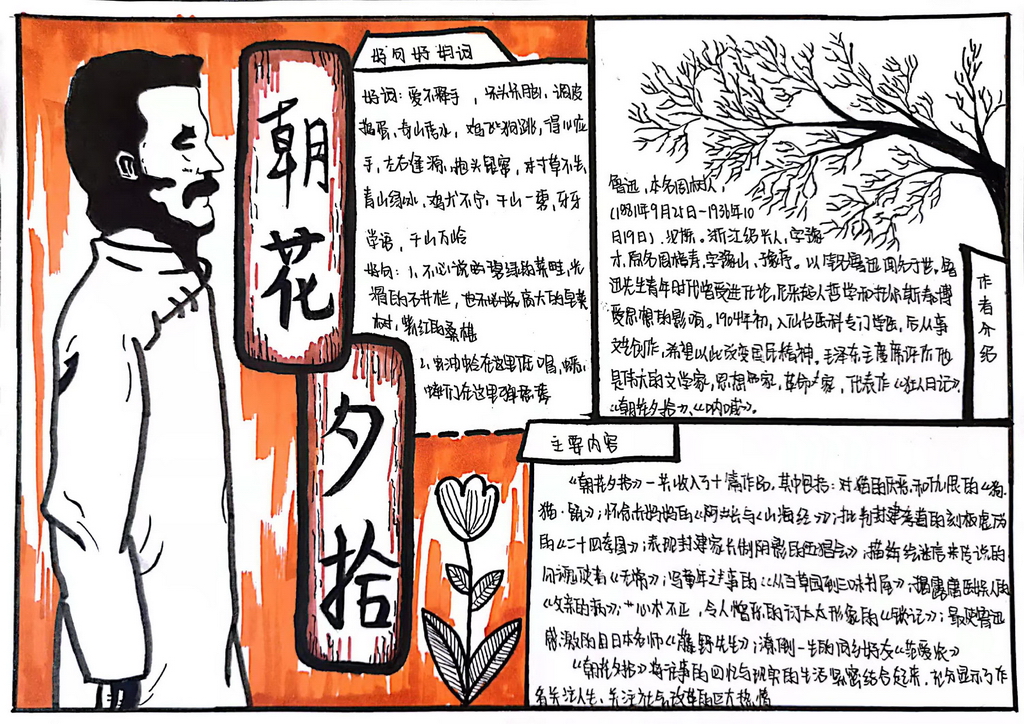 朝花
夕拾
好句好好词
好词:爱不释手,呆头呆脑,调皮
捣蛋,奇山秀水,鸡飞狗跳,得心应
手,左右逢源,抱头鼠窜,寸草不生
青山绿水,鸡犬不宁,千山一碧,牙牙
学语,千山万岭
好句:1、不必说的碧绿的菜畦,光
滑的石井栏,也不必说高大的皂荚
树,紫红的桑椹
2、油蛉在这里低唱,蟋
蟀们在这里弹琴
作者介绍
鲁迅,本名周树人,
(1881年9月25日-1936年10
月19日),汉族。浙江绍兴人,字豫
才,原名周樟寿,字豫山、豫亭。以笔名鲁迅闻名于世。鲁
迅先生青年时代曾受进化论,尼采超人哲学和托尔斯泰博
爱思想的影响。1904年初,入仙台医科专门学医,后从事
文学创作,希望以此改变国民精神。毛泽东主席评价他
是伟大的文学家,思想家,革命家,代表作《狂人日记》、
《朝花夕拾》、《呐喊》。
主要内容
《朝花夕拾》一共收入了十篇作品,其中包括:对猫的厌恶和仇恨的《狗.
猫.鼠》;怀念长妈妈的《阿长与《山海经》》;批判封建孝道的刻板虐历
的《二十四孝图》;表现封建家长制阴影的《五猖会》;描绘
《无常》;写童年之事的《从百草园到三味书屋》;揭露庸医误人的
《父亲的病》;心术不正,令人憎的衍太太形象的《锁记》;最使鲁迅
感激的日本名师《藤野先生》;一生的同乡好友《范爱农》
《朝花夕拾》将往事的回忆与现实的生活紧密结合起来,充分显示了作
者关注人生,关注社会改革的巨大热情